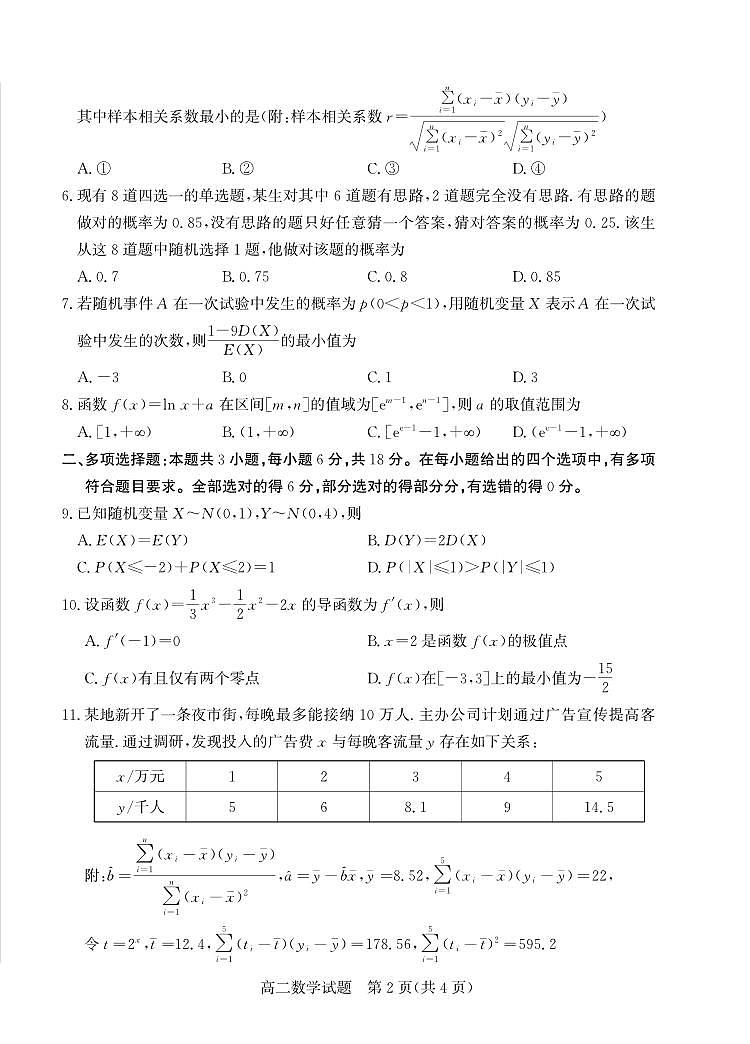 其中样本相关系数最小的是(附:样本相关系数 r=\frac{\sum_{i=1}^{n}(x_i-\bar{x})(y_i-\bar{y})}{\sqrt{\sum_{i=1}^{n}(x_i-\bar{x})^2}\sqrt{\sum_{i=1}^{n}(y_i-\bar{y})^2}})
A.① B.② C.③ D.④
6.现有8道四选一的单选题,某生对其中6道题有思路,2道题完全没有思路.有思路的题
做对的概率为0.85,没有思路的题只好任意猜一个答案,猜对答案的概率为0.25.该生
从这8道题中随机选择1题,他做对该题的概率为
A.0.7 B.0.75 C.0.8 D.0.85
7.若随机事件A在一次试验中发生的概率为p(0<p<1),用随机变量X表示A在一次试
验中发生的次数,则\frac{1-9D(X)}{E(X)}的最小值为
A.-3 B.0 C.1 D.3
8.函数f(x)=ln x+a在区间[m,n]的值域为[e^{m-1},e^{n-1}],则a的取值范围为
A.[1,+∞) B.(1,+∞) C.[e^{e-1}-1,+∞) D.(e^{e-1}-1,+∞)
二、多项选择题:本题共3小题,每小题6分,共18分。在每小题给出的四个选项中,有多项
符合题目要求。全部选对的得6分,部分选对的得部分分,有选错的得0分。
9.已知随机变量X~N(0,1),Y~N(0,4),则
A.E(X)=E(Y) B.D(Y)=2D(X)
C.P(X≤-2)+P(X≤2)=1 D.P(|X|≤1)>P(|Y|≤1)
10.设函数f(x)=\frac{1}{3}x^3-\frac{1}{2}x^2-2x的导函数为f′(x),则
A.f′(-1)=0 B.x=2是函数f(x)的极值点
C.f(x)有且仅有两个零点 D.f(x)在[-3,3]上的最小值为-\frac{15}{2}
11.某地新开了一条夜市街,每晚最多能接纳10万人.主办公司计划通过广告宣传提高客
流量.通过调研,发现投入的广告费x与每晚客流量y存在如下关系:
x/万元 1 2 3 4 5
y/千人 5 6 8.1 9 14.5
附:\hat{b}=\frac{\sum_{i=1}^{n}(x_i-\bar{x})(y_i-\bar{y})}{\sum_{i=1}^{n}(x_i-\bar{x})^2},\hat{a}=\bar{y}-\hat{b}\bar{x},\bar{y}=8.52,\sum_{i=1}^{5}(x_i-\bar{x})(y_i-\bar{y})=22,
令t=2^x,\bar{t}=12.4,\sum_{i=1}^{5}(t_i-\bar{t})(y_i-\bar{y})=178.56,\sum_{i=1}^{5}(t_i-\bar{t})^2=595.2
高二数学试题 第2页(共4页)